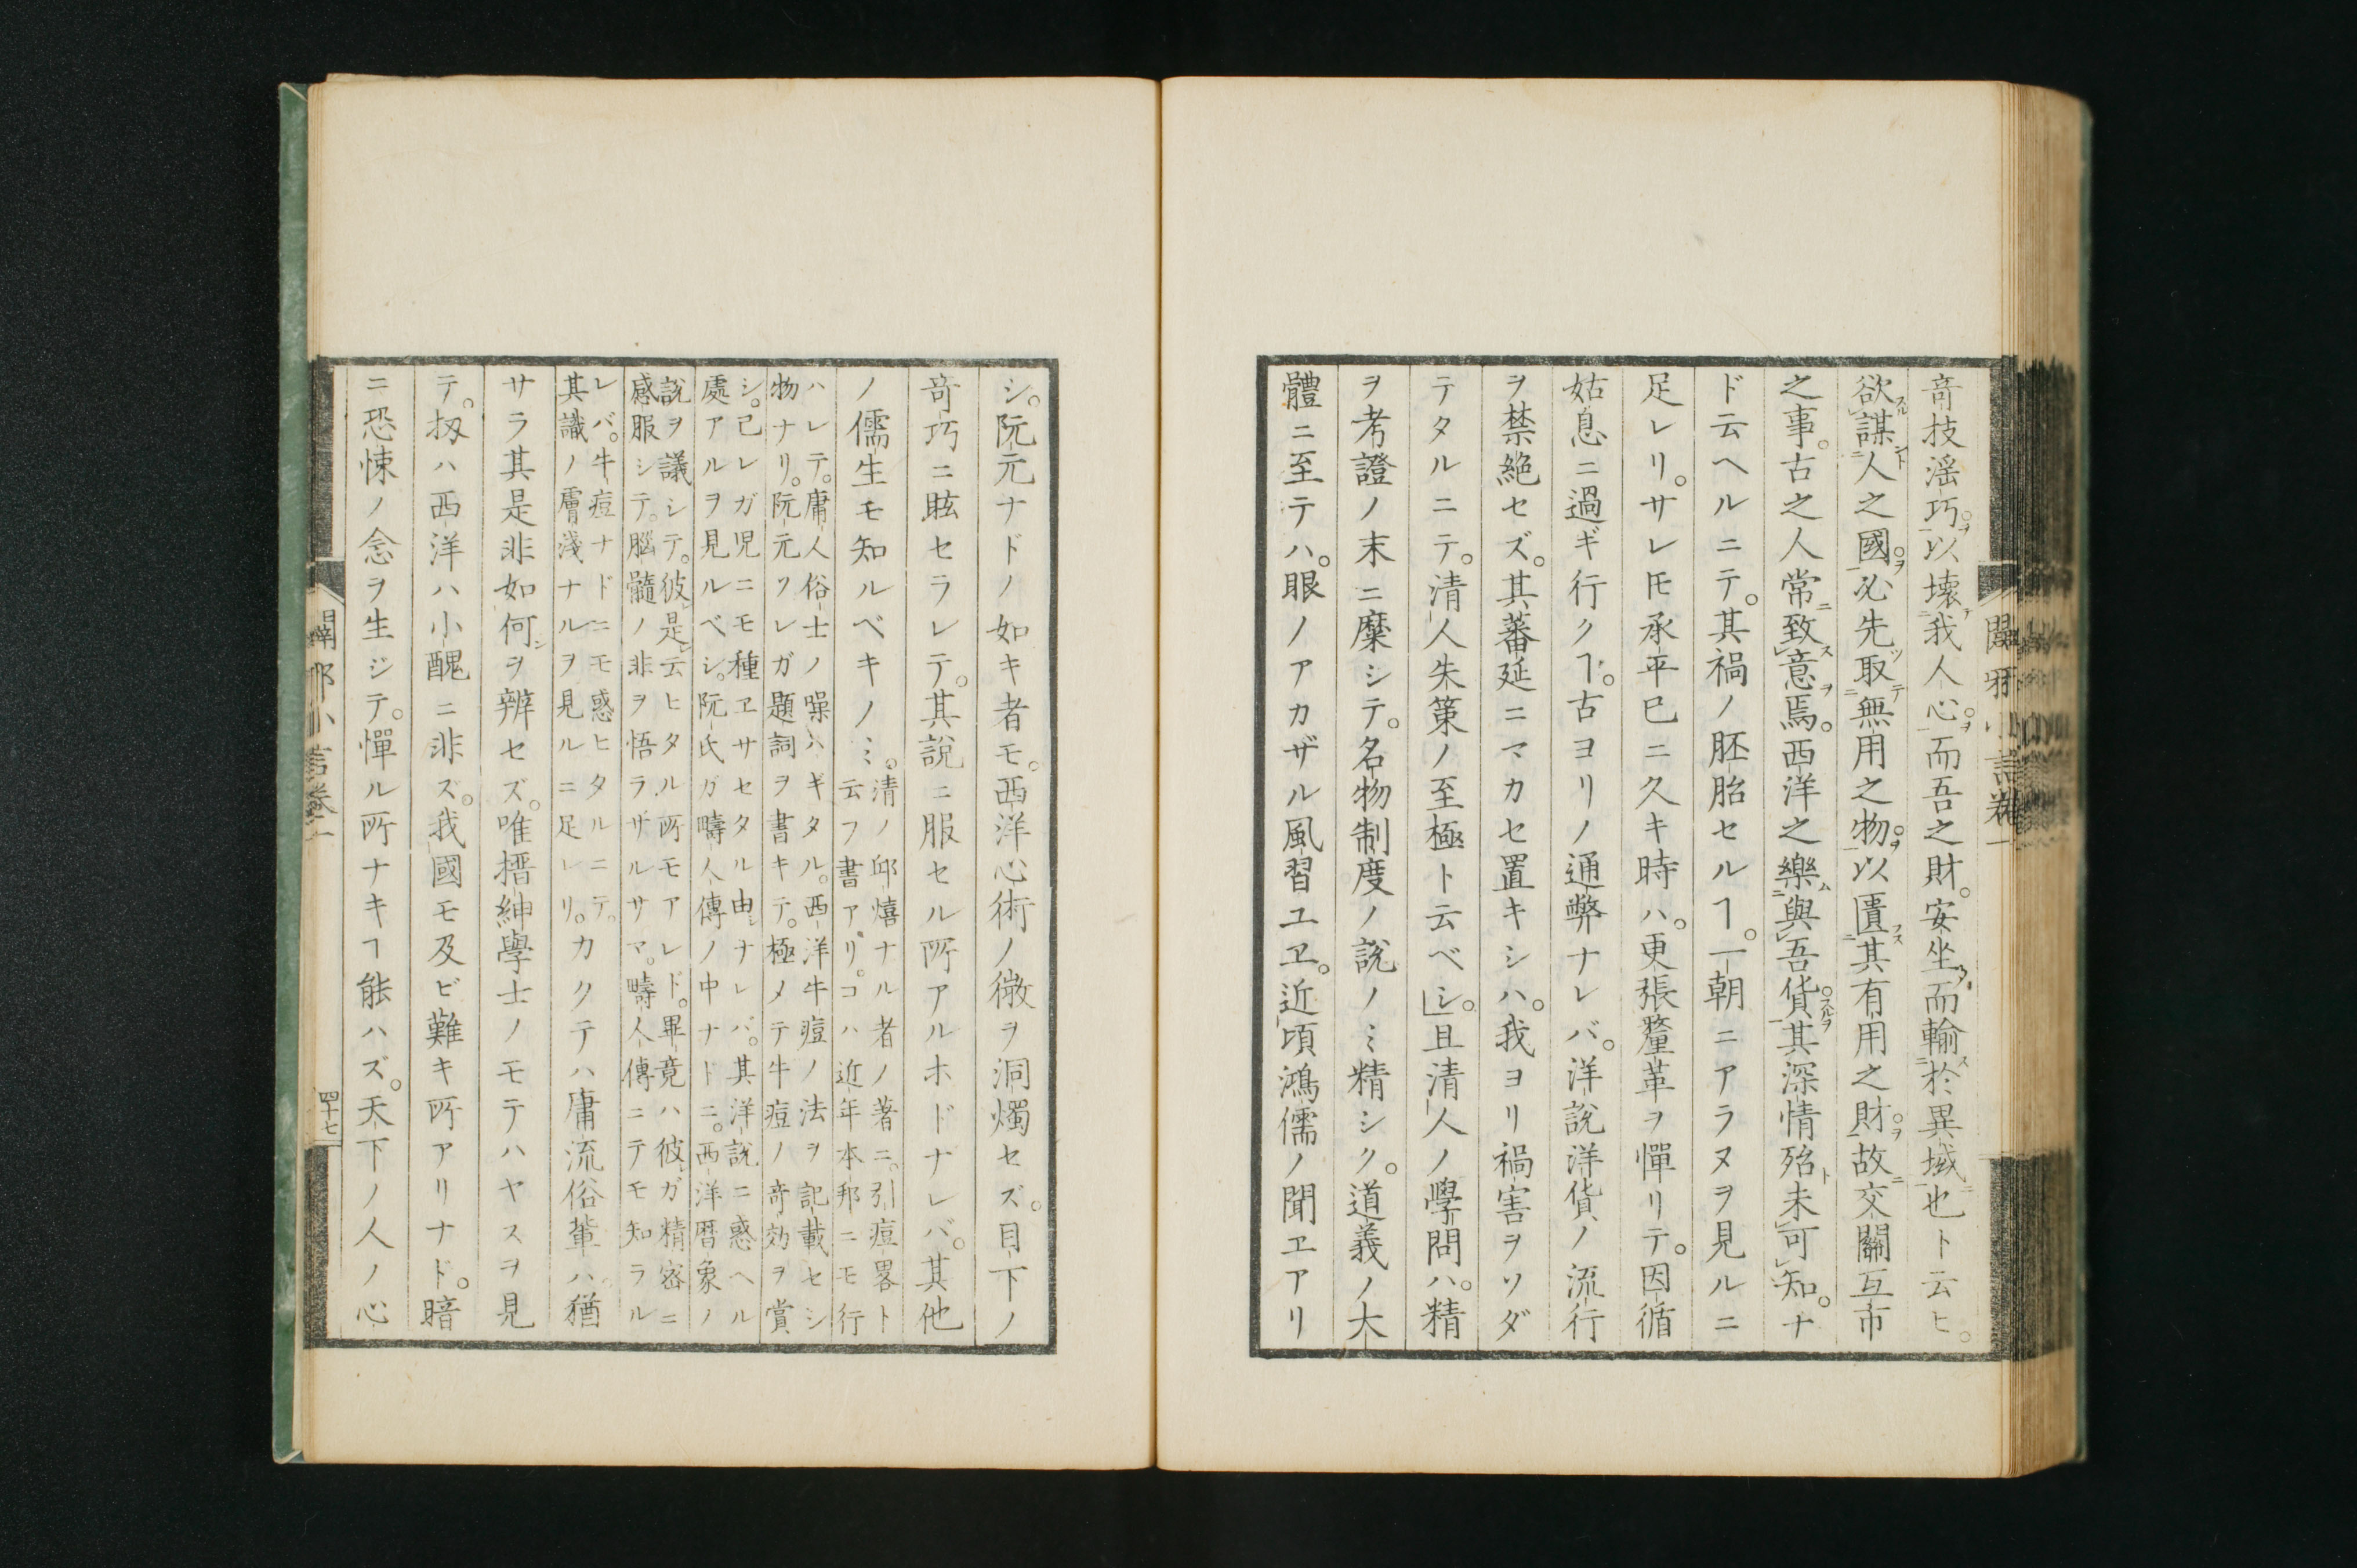 奇技滛巧。以壊我人心。而吾之財。安坐而輸於異域也ト云ヒ。
欲謀人之國。必先取無用之物。以匱其有用之財。故交關互市
之事。古之人常致意焉。西洋之樂與吾貨。其深情殆未可知。ナ
ド云ヘルニテ。其禍ノ胚胎セルヿ。一朝ニアラヌヲ見ルニ
足レリ。サレ𪜈承平已ニ久キ時ハ。更張釐革ヲ憚リテ。因循
姑息ニ過ギ行クヿ。古ヨリノ通弊ナレバ。洋說洋貨ノ流行
ヲ禁絶セズ。其蕃延ニマカセ置キシハ。我ヨリ禍害ヲソダ
テタルニテ。清人失策ノ至極ト云ベシ。且清人ノ學問ハ。精
ヲ考證ノ末ニ糜シテ。名物制度ノ說ノミ精シク。道義ノ大
體ニ至テハ。眼ノアカザル風習ユヱ。近頃鴻儒ノ聞エアリ
闢邪小言卷一
シ。阮元ナドノ如キ者モ。西洋心術ノ微ヲ洞燭セズ。目下ノ
奇巧ニ眩セラレテ。其說ニ服セル所アルホドナレバ。其他
ノ儒生モ知ルベキノミ。
清ノ邱熺ナル者ノ著ニ。引痘畧ト
云フ書アリ。コハ近年本邦ニモ行
ハレテ。庸人俗士ノ噪ハギタル。西洋牛痘ノ法ヲ記載セシ
物ナリ。阮元ソレガ題詞ヲ書キテ。極メテ牛痘ノ奇効ヲ賞
シ。己レガ児ニモ種ヱサセタル由ナレバ。其洋說ニ惑ヘル
處アルヲ見ルベシ。阮氏ガ疇人傳ノ中ナドニ。西洋暦象ノ
說ヲ議シテ。彼是云ヒタル所モアレド。畢竟ハ彼ガ精密ニ
感服シテ。腦髓ノ非ヲ悟ラザルサマ。疇人傳ニテモ知ラル
レバ。牛痘ナドニモ惑ヒタルニテ。
其識ノ膚淺ナルヲ見ルニ足レリ。
カクテハ庸流俗輩ハ。猶
サラ其是非如何ヲ辨セズ。唯搢紳學士ノモテハヤスヲ見
テ。扨ハ西洋ハ小醜ニ非ズ。我國モ及ビ難キ所アリナド。暗
ニ恐悚ノ念ヲ生ジテ。憚ル所ナキヿ能ハズ。天下ノ人ノ心
闢邪小言卷一
四十七